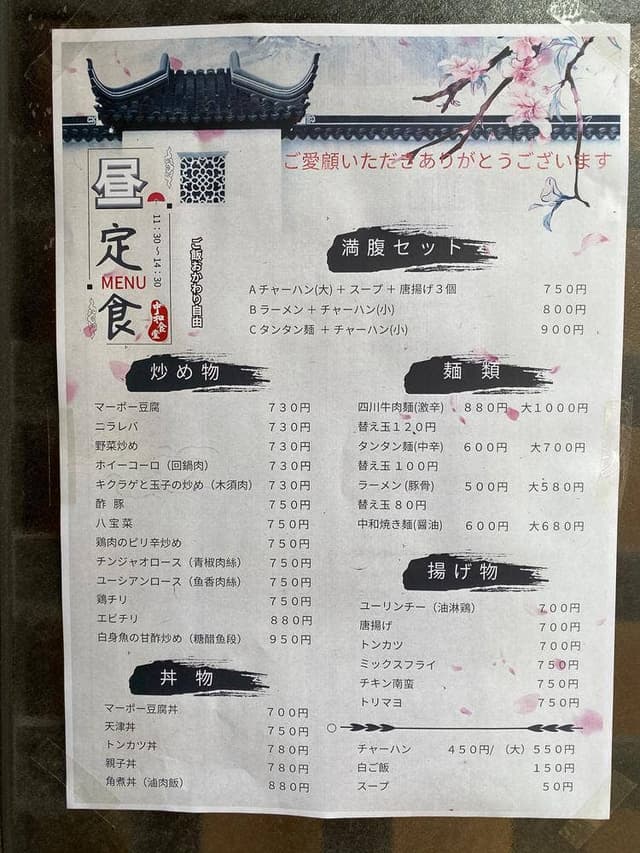 ご愛顧いただきありがとうございます
昼定食
MENU
11:30～14:30
中和食堂
ご飯おかわり自由
満腹セット
Aチャーハン(大)＋スープ＋唐揚げ３個 ７５０円
Bラーメン＋チャーハン(小) ８００円
Cタンタン麺＋チャーハン(小) ９００円
炒め物
マーボー豆腐 ７３０円
ニラレバ ７３０円
野菜炒め ７３０円
ホイーコーロ（回鍋肉） ７３０円
キクラゲと玉子の炒め（木須肉） ７３０円
酢豚 ７５０円
八宝菜 ７５０円
鶏肉のピリ辛炒め ７５０円
チンジャオロース（青椒肉絲） ７５０円
ユーシアンロース（鱼香肉絲） ７５０円
鶏チリ ７５０円
エビチリ ８８０円
白身魚の甘酢炒め（糖醋鱼段） ９５０円
丼物
マーボー豆腐丼 ７００円
天津丼 ７５０円
トンカツ丼 ７８０円
親子丼 ７８０円
角煮丼（滷肉飯） ８８０円
麺類
四川牛肉麺(激辛) ８８０円 大１０００円
替え玉１２０円
タンタン麺(中辛) ６００円 大７００円
替え玉１００円
ラーメン(豚骨) ５００円 大５８０円
替え玉８０円
中和焼き麺(醤油) ６００円 大６８０円
揚げ物
ユーリンチー（油淋鶏） ７００円
唐揚げ ７００円
トンカツ ７００円
ミックスフライ ７５０円
チキン南蛮 ７５０円
トリマヨ ７５０円
チャーハン ４５０円/（大）５５０円
白ご飯 １５０円
スープ ５０円